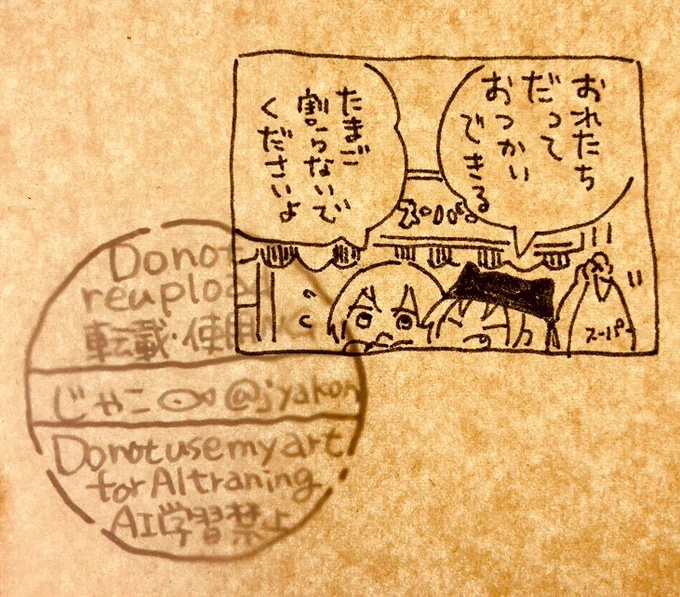 おれたち
だって
おつかい
できる
たまご
割らないで
くださいよ
スーパー
スーパー
Do not
reuploa
転載・使用
じゃこ @jyakon
Donotusemyart
for AItraning
AI学習禁止